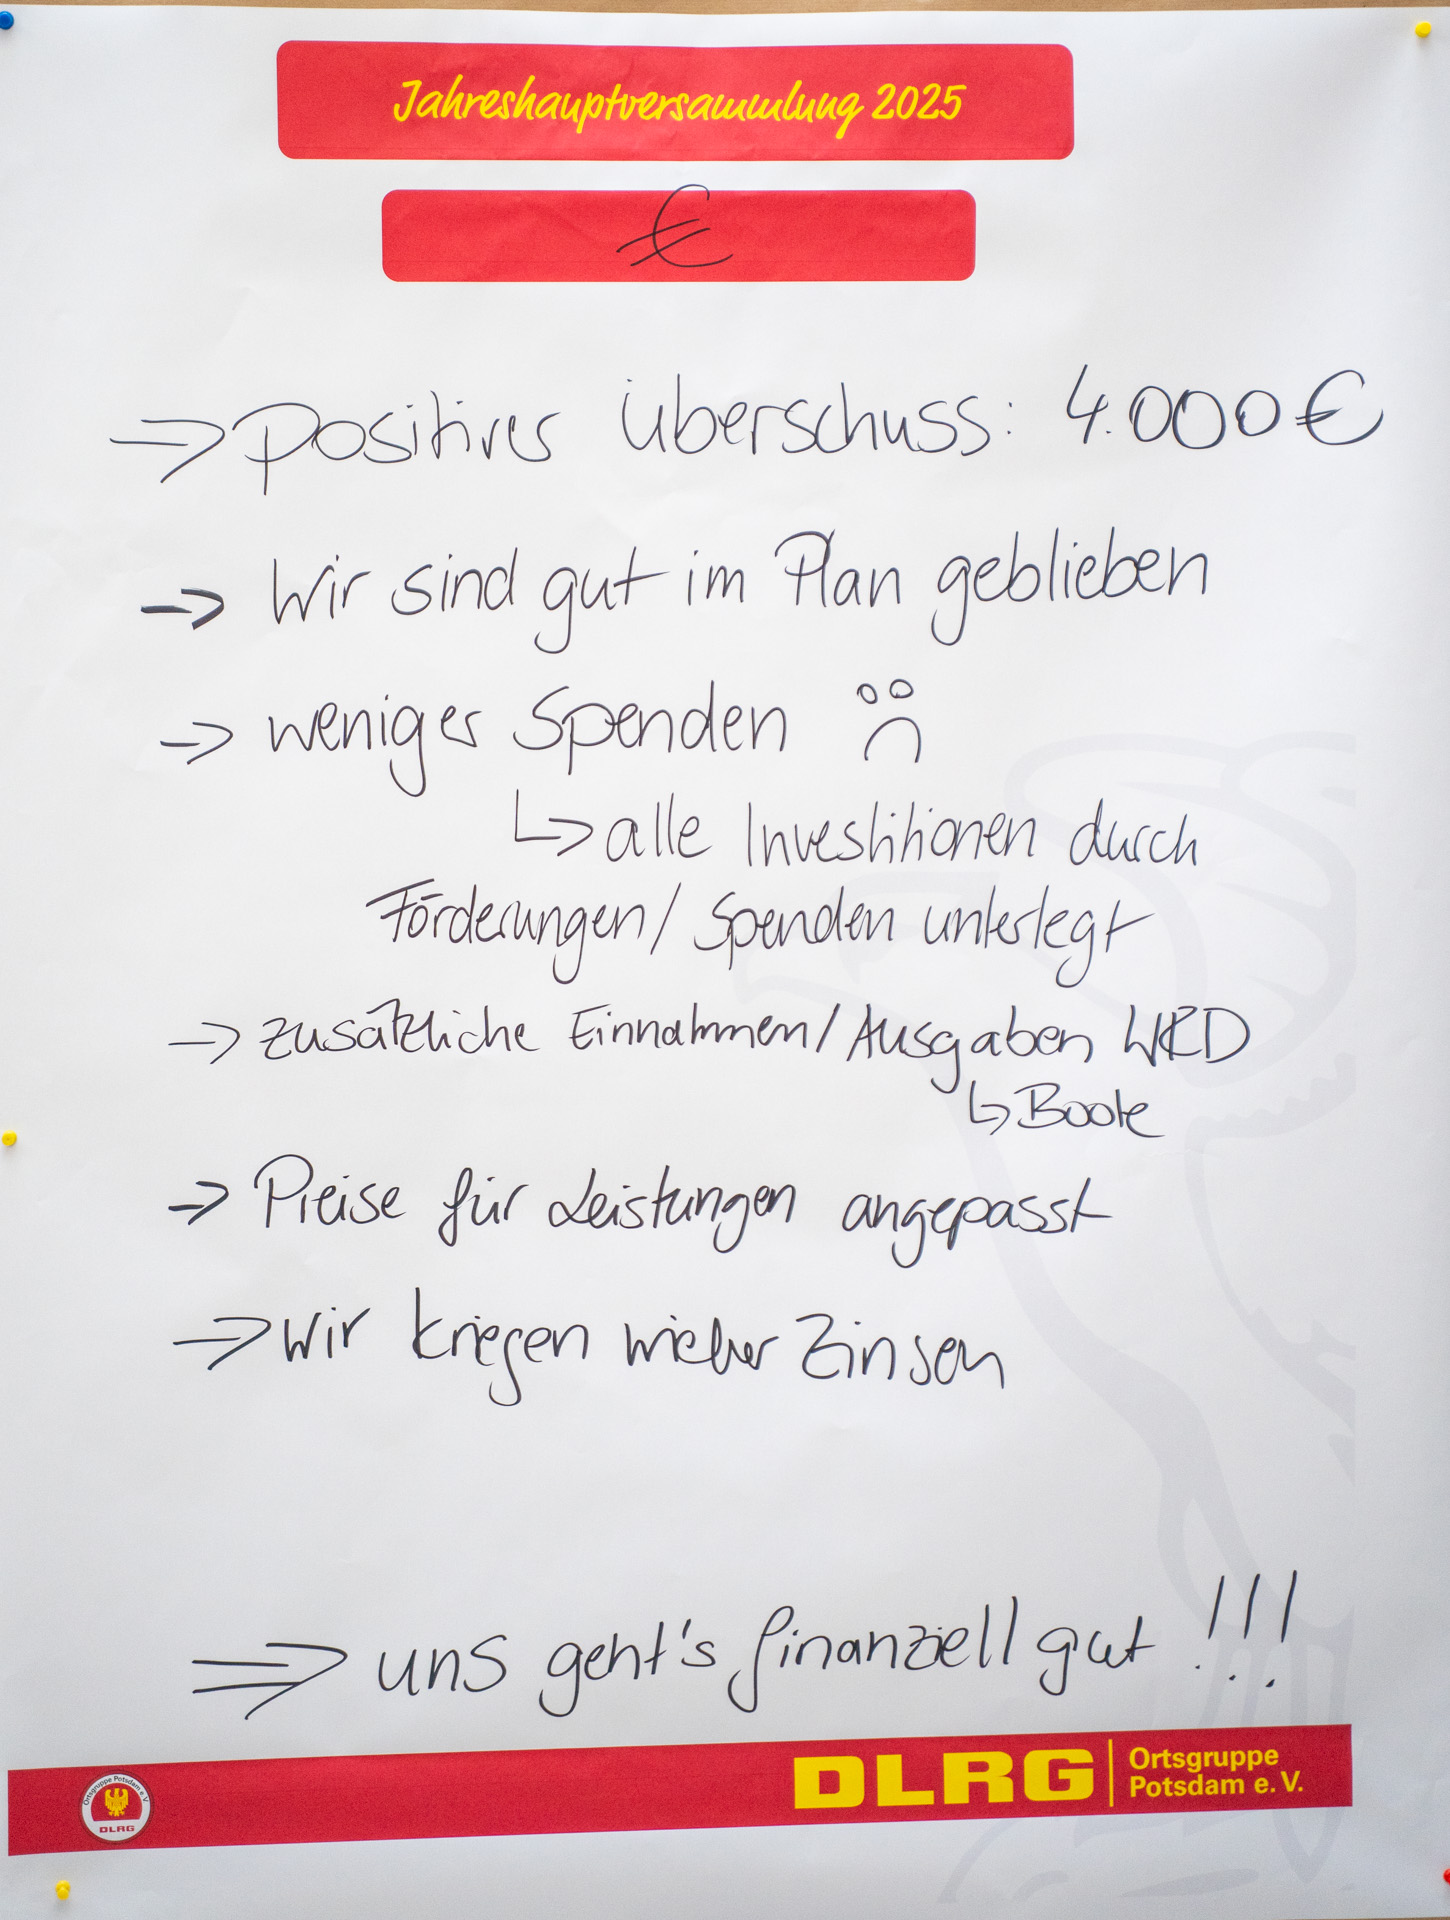 Jahreshauptversammlung 2025
€
=> positiver Überschuss: 4.000€
-> Wir sind gut im Plan geblieben
-> weniger Spenden
↳ alle Investitionen durch
Förderungen/ Spenden unterlegt
-> zusätzliche Einnahmen/Ausgaben WRD
↳ Boote
-> Preise für Leistungen angepasst
-> Wir kriegen wieder Zinsen
=> uns geht's finanziell gut !!!
DLRG
Ortsgruppe
Potsdam e. V.
Ortsgruppe Potsdam e. V.
DLRG